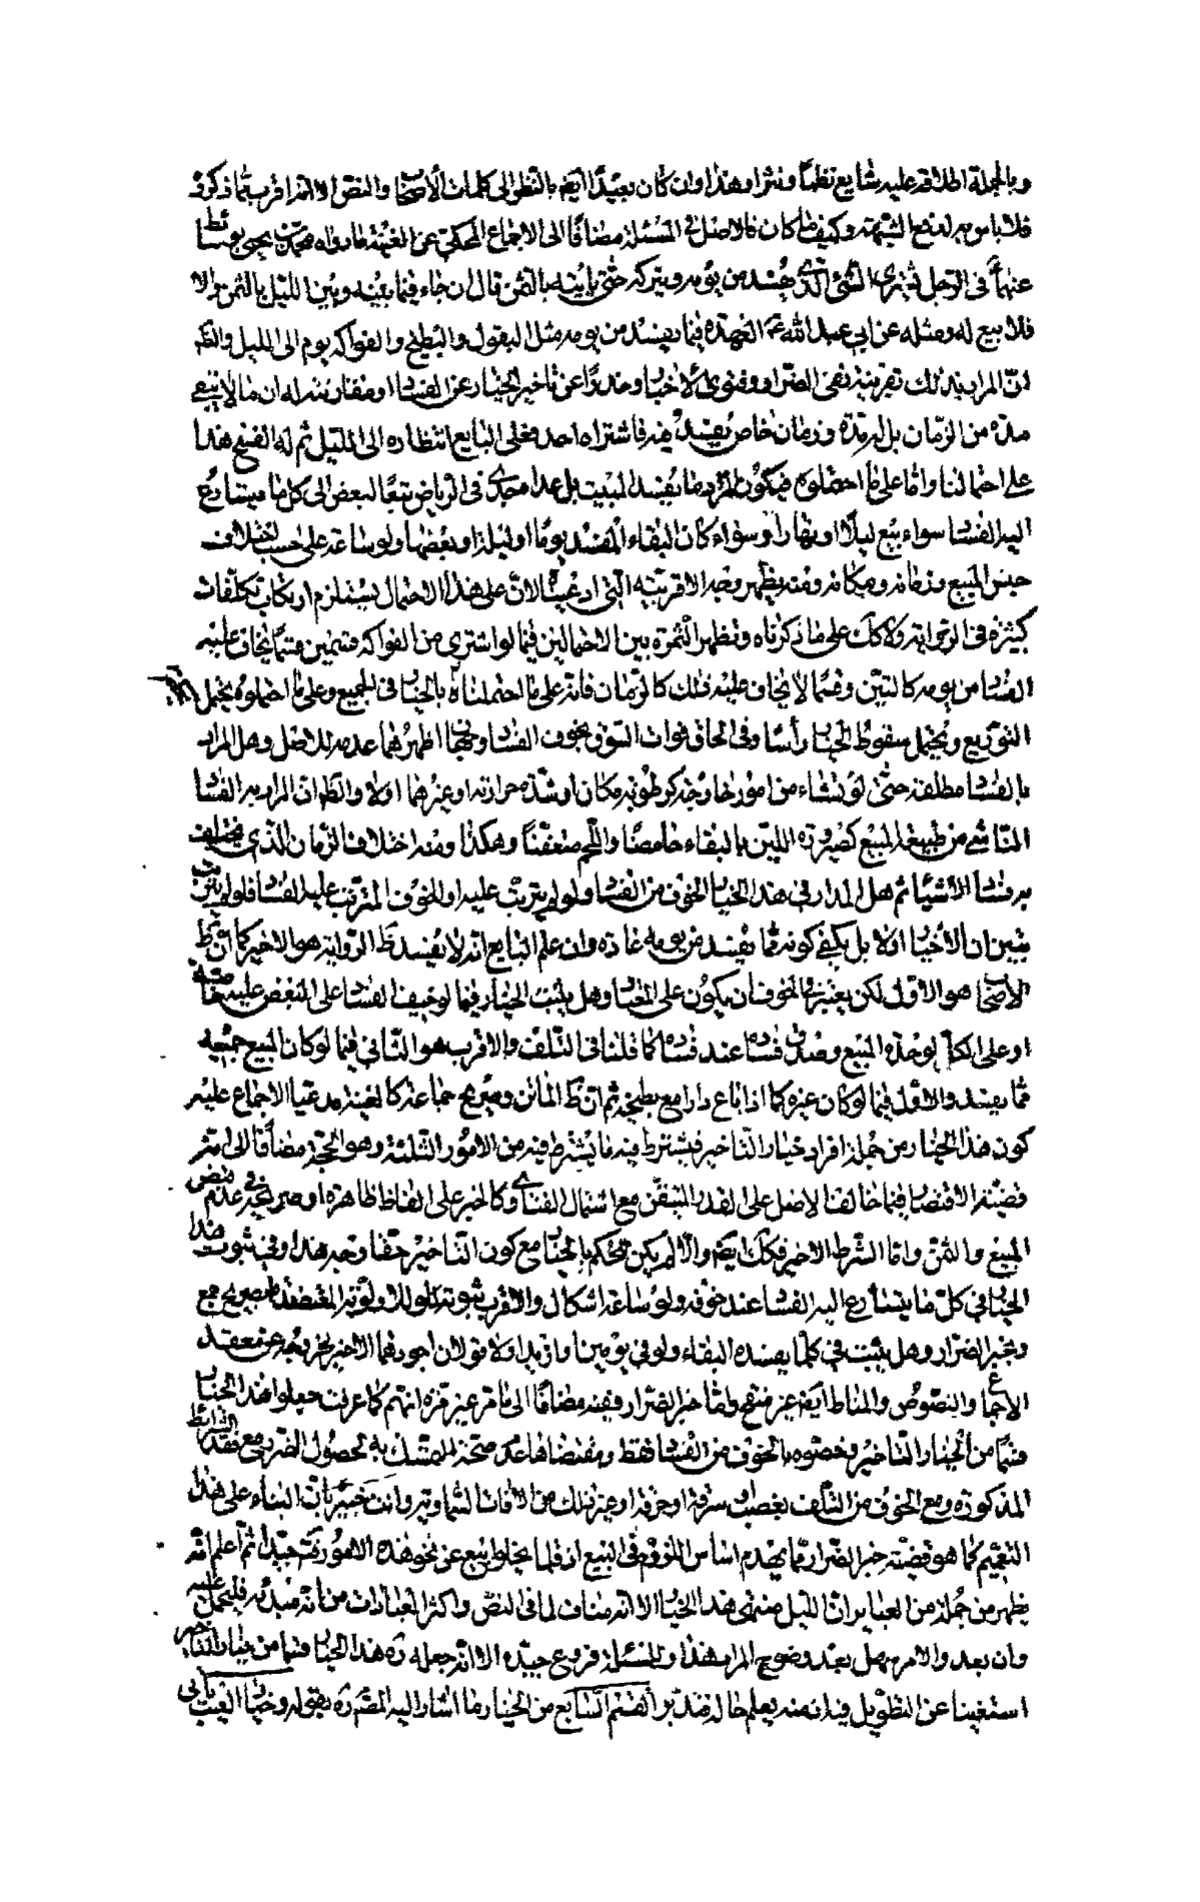 وبالجملة اطلاقه عليه شايع نظماً ونثراً وهذا وان كان بعيداً ايضا بالنظر الى كلمات الأصحاب والنص الا انه اقرب مما ذكروه
فلا باس به لدفع الشبهة وكيف ما كان فالاصل فى المسئلة مضافًا الى الاجماع المحكى عن الغنية ما رواه محمد بن يحيى
عنهما فى الرجل يشترى الشئ الذى يفسد من يومه ويتركه حتى ياتيه بالثمن قال ان جاء فيما بينه وبين الليل بالثمن والا
فلا بيع له ومثله عن ابي عبد الله ع العهدة فيما يفسد من يومه مثل البقول والبطيخ والفواكه يوم الى الليل والظ
ان المراد بذلك بقرينة نفى الضرار وفتوى الأخيار وحذرًا عن تاخير الخيار عن الفساد او مقارنته له ان ما لا يبقى
مدة من الزمان بل له مدة وزمان خاص يفسد فيه فاشتراه احد فعلى البايع انتظاره الى الليل ثم له الفسخ هذا
على احتمالنا واما على ما احتملوه فيكون المراد ما يفسد المبيت بل عداه جدى فى الرياض تبعًا لبعض الى كل ما يتسارع
اليه الفساد سواء بيع ليلًا او نهارًا وسواء كان البقاء المفسد يومًا او ليلة او بعضها ولو ساعة على حسب اختلاف
جنس المبيع وزمانه ومكانه ومنه يظهر وجه الاقربية التى ادعيناه لان على هذا الاحتمال يستلزم ارتكاب تكلفات
كثيرة فى الرواية ولا كك على ما ذكرناه وتظهر الثمرة بين الاحتمالين فيما لو اشترى من الفواكه قسمين قسمًا يخاف عليه
الفساد من يومه كالتين وقسمًا لا يخاف عليه ذلك كالرمان فانه على ما احتملناه بالخيار فى الجميع وعلى ما احتملوه يحتمل
التوزيع ويحتمل سقوط الخيار رأسًا وفى الحاق فوات السوق بخوف الفساد وجهان اظهرهما عدمه للاصل وهل المراد
بالفساد مطلقه حتى لو نشاء من امور خارجة كرطوبة مكان او شدة حرارته او غيرهما او لا والظ ان المراد به الفساد
الناشى من طبيعة المبيع كصيرورة اللبن بالبقاء حامضًا واللحم متعفنًا وهكذا ومنه اختلاف الزمان الذى يختلف
به فساد الأشياء ثم هل المدار فى هذا الخيار الخوف من الفساد ولو لم يترتب عليه او الخوف المترتب عليه الفساد فلو لم يترتب
تبين ان لا خيار او لا بل يكفى كونه مما يفسد من يومه عادة وان علم البايع انه لا يفسد ظ الرواية هو الاخير كما ان ظ
الاصحاب هو الاول لكن يعتبر فى الخوف ان يكون على المعتاد وهل يثبت الخيار فيما لو خيف الفساد على البعض عليه خاصة
او على الكل لوحدة المبيع وصدق فساده عند فساده كما قلنا فى التلف والاقرب هو الثانى فيما لو كان المبيع جميعه
مما يفسد والاول فيما لو كان غيره كما اذا باع دارا مع بطيخة ثم ان ظ الماتن وصريح جماعة كالغنية مدعيا الاجماع عليه
كون هذا الخيار من جملة افراد خيار التاخير فيشترط فيه ما يشترط فيه من الامور الثلثة وهو الحجة مضافًا الى انه
قضية الاقتصار فيما خالف الاصل على القدر المتيقن مع اشتمال الفتاوى كالخبر على الفاظ ظاهرة او صريحة فى عدم قبض
المبيع والثمن واما الشرط الاخير فكك ايضا والا لم يكن الحكم بالخيار مع كون التاخير حقا وجه هذا وفى ثبوت هذا
الخيار فى كل ما يتسارع اليه الفساد عند خوفه ولو ساعة اشكال والاقرب ثبوته للاولوية المعتضدة بصريح جمع
وبخبر الضرار وهل يثبت فى كلما يفسده البقاء ولو فى يومين او ازيد او لا قولان اجودهما الاخير لخروجه عن معقد
الاجماع والنصوص والمناط ايضا غير منقح واما خبر الضرار ففيه مضافًا الى ما مر غير مرة انهم كما عرفت جعلوا هذا الخيار
قسمًا من الخيار التاخير وخصوه بالخوف من الفساد فقط ومقتضاها عدم صحة التمسك به لحصول الضرر مع فقد الشرائط
المذكورة ومع الخوف من التلف بغصب او سرقة او حرقة او غير ذلك من الافات السماوية وانت خبير بان البناء على هذا
التعميم كما هو قضية خبر الضرار مما يهدم اساس اللزوم فى البيع اذ قلما يخلو بيع عن نحو هذه الامور فتدبر جيدا ثم اعلم انه
يظهر من جملة من العباير ان الليل منتهى هذا الخيار الا انه مناف لما فى النص واكثر العبارات من انه مبدئه فليحمل عليه
وان بعد والامر سهل بعد وضوح المراد هذا وللمسئلة فروع جيده الا انه لما جعله ره هذا الخيار قسما من خيار التاخير
استغنينا عن التطويل فيه اذ منه يعلم حاله فتدبر القسم السابع من الخيار ما اشار اليه المصنف ره بقوله وخيار العيب ياتى